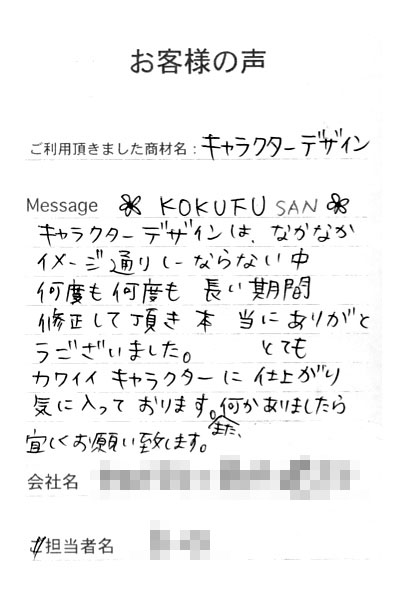 お客様の声
ご利用頂きました商材名：キャラクターデザイン
Message KOKUFU SAN
キャラクターデザインは、なかなか
イメージ通りにならない中
何度も何度も 長い期間
修正して頂き 本当にありがと
うございました。 とても
カワイイ キャラクターに 仕上がり
気に入って おります。また、何かありましたら
宜しくお願い致します。
会社名
ご担当者名